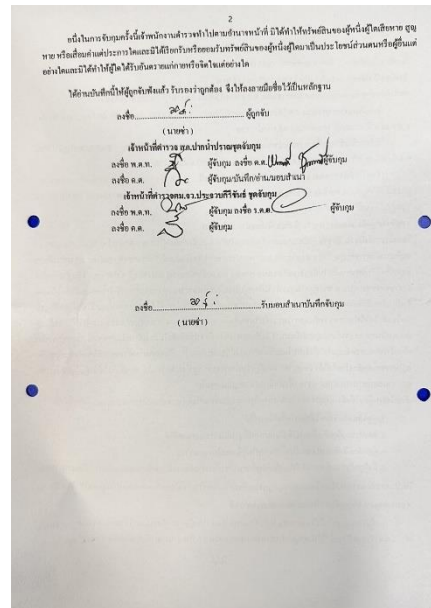 2
อนึ่งในการจับกุมครั้งนี้เจ้าพนักงานตำรวจทำไปตามอำนาจหน้าที่ มิได้ทำให้ทรัพย์สินของผู้หนึ่งผู้ใดเสียหาย สูญ
หาย หรือเสื่อมค่าแต่ประการใดและมิได้เรียกรับหรือยอมรับทรัพย์สินของผู้หนึ่งผู้ใดมาเป็นประโยชน์ส่วนตนหรือผู้อื่นแต่
อย่างใดและมิได้ทำให้ผู้ใดได้รับอันตรายแก่กายหรือจิตใจแต่อย่างใด
ได้อ่านบันทึกนี้ให้ผู้ถูกจับฟังแล้ว รับรองว่าถูกต้อง จึงให้ลงลายมือชื่อไว้เป็นหลักฐาน
ลงชื่อ ผู้ถูกจับ
(นายซ่า)
เจ้าหน้าที่ตำรวจ สภ.ปากน้ำปราณชุดจับกุม
ลงชื่อ พ.ต.ท. ผู้จับกุม ลงชื่อ ด.ต. ผู้จับกุม
ลงชื่อ ด.ต. ผู้จับกุม/บันทึก/อ่าน/มอบสำเนา
เจ้าหน้าที่ตำรวจตม.จว.ประจวบคีรีขันธ์ ชุดจับกุม
ลงชื่อ พ.ต.ท. ผู้จับกุม ลงชื่อ ร.ต.อ. ผู้จับกุม
ลงชื่อ ด.ต. ผู้จับกุม
ลงชื่อ รับมอบสำเนาบันทึกจับกุม
(นายซ่า)